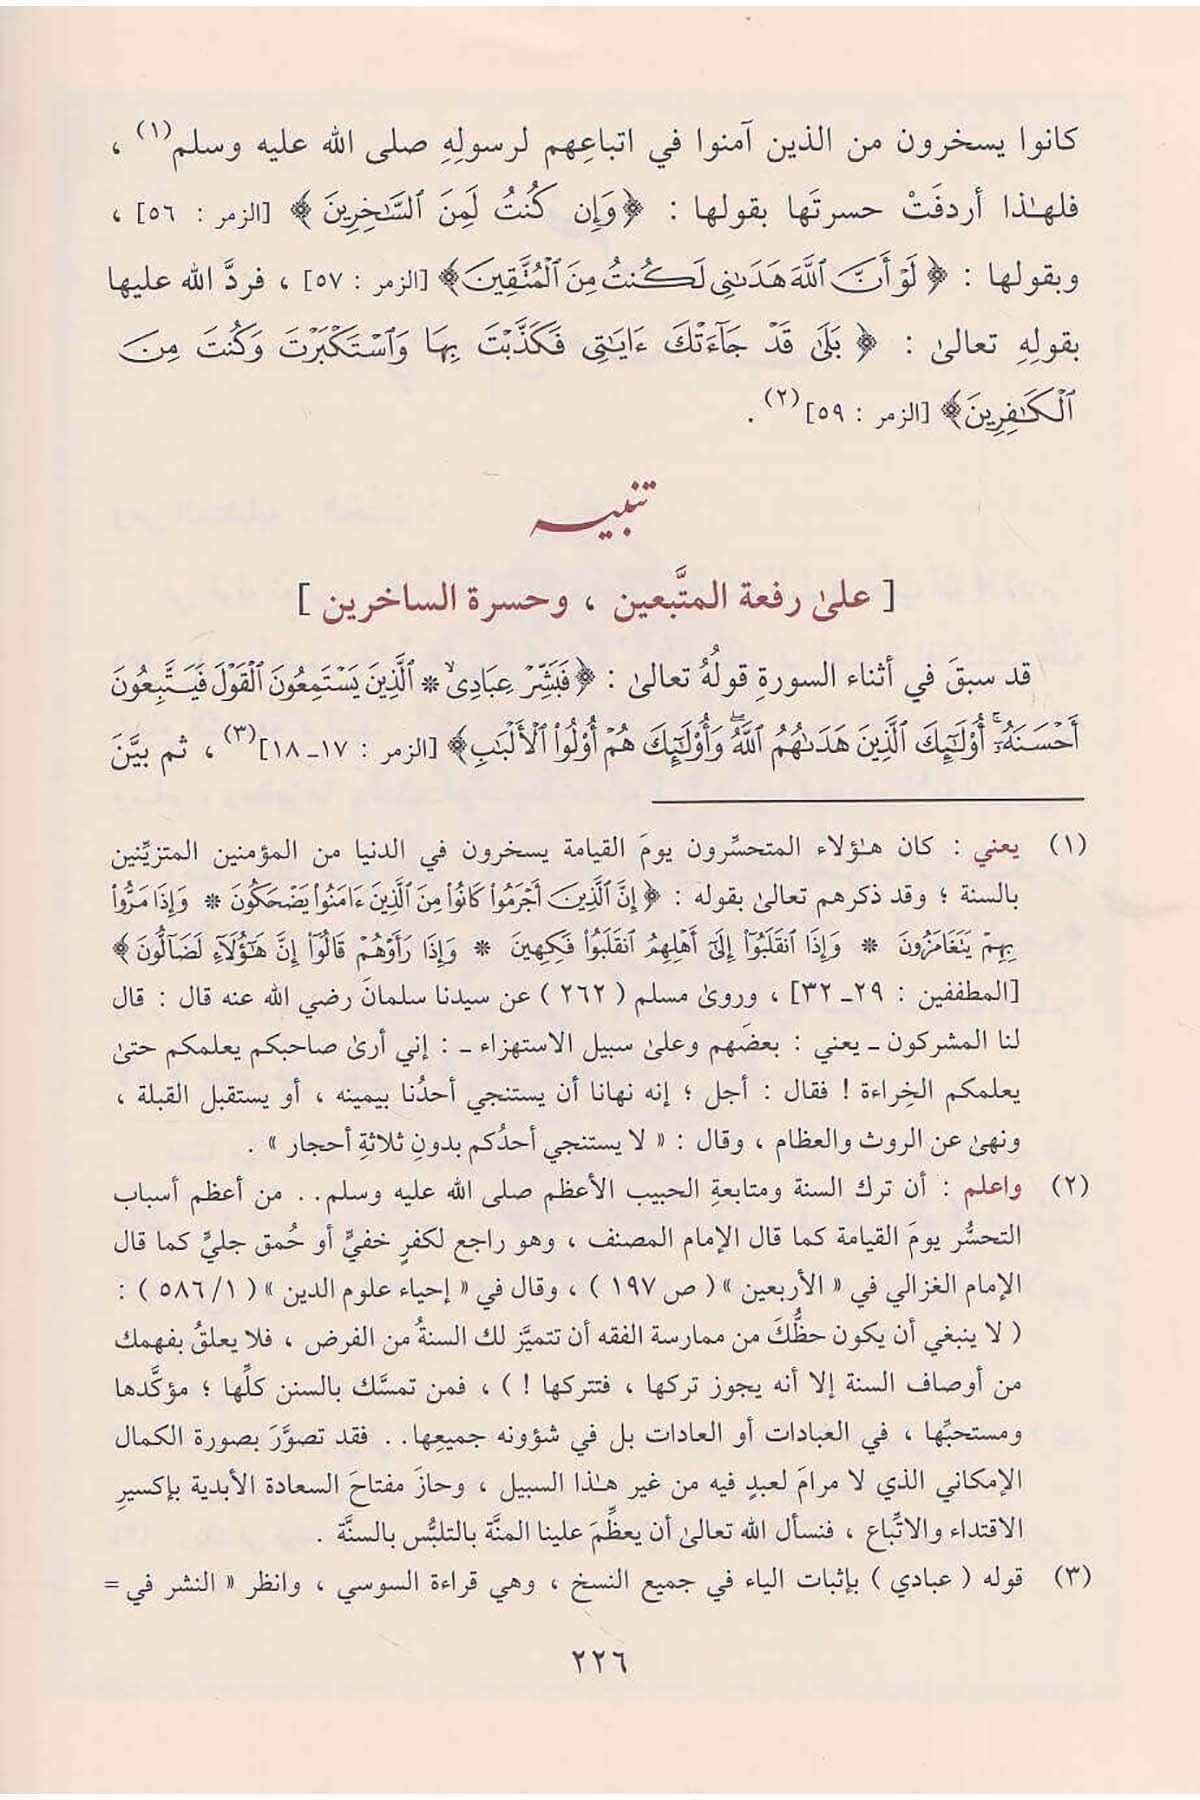 كانوا يسخرون من الذين آمنوا في اتباعِهم لرسولِهِ صلى الله عليه وسلم(١) ،
فلهـٰذا أردفَتْ حسرتَها بقولها : ﴿ وَإِن كُنتُ لَمِنَ ٱلسَّـٰخِرِينَ ﴾ [الزمر : ٥٦] ،
وبقولها : ﴿ لَوْ أَنَّ ٱللَّهَ هَدَىٰنِى لَكُنتُ مِنَ ٱلْمُتَّقِينَ ﴾ [الزمر : ٥٧] ، فردَّ الله عليها
بقولِهِ تعالىٰ : ﴿ بَلَىٰ قَدْ جَآءَتْكَ ءَايَـٰتِى فَكَذَّبْتَ بِهَا وَٱسْتَكْبَرْتَ وَكُنتَ مِنَ
ٱلْكَـٰفِرِينَ ﴾ [الزمر : ٥٩](٢) .
تنبيه
[ علىٰ رفعة المتَّبعين ، وحسرة الساخرين ]
قد سبقَ في أثناء السورةِ قولُهُ تعالىٰ : ﴿ فَبَشِّرْ عِبَادِىَ * ٱلَّذِينَ يَسْتَمِعُونَ ٱلْقَوْلَ فَيَتَّبِعُونَ
أَحْسَنَهُۥٓ أُو۟لَـٰٓئِكَ ٱلَّذِينَ هَدَىٰهُمُ ٱللَّهُ وَأُو۟لَـٰٓئِكَ هُمْ أُو۟لُوا۟ ٱلْأَلْبَـٰبِ ﴾ [الزمر : ١٧ـ١٨](٣) ، ثم بيَّنَ
(١) يعني : كان هـٰؤلاء المتحسِّرون يومَ القيامة يسخرون في الدنيا من المؤمنين المتزيِّنين
بالسنة ؛ وقد ذكرهم تعالىٰ بقوله : ﴿ إِنَّ ٱلَّذِينَ أَجْرَمُوا۟ كَانُوا۟ مِنَ ٱلَّذِينَ ءَامَنُوا۟ يَضْحَكُونَ * وَإِذَا مَرُّوا۟
بِهِمْ يَتَغَامَزُونَ * وَإِذَا ٱنقَلَبُوٓا۟ إِلَىٰٓ أَهْلِهِمُ ٱنقَلَبُوا۟ فَكِهِينَ * وَإِذَا رَأَوْهُمْ قَالُوٓا۟ إِنَّ هَـٰٓؤُلَآءِ لَضَآلُّونَ ﴾
[المطففين : ٢٩ـ٣٢] ، وروىٰ مسلم ( ٢٦٢ ) عن سيدنا سلمانَ رضي الله عنه قال : قال
لنا المشركون ـ يعني : بعضَهم وعلىٰ سبيل الاستهزاء ـ : إني أرىٰ صاحبكم يعلمكم حتىٰ
يعلمكم الخِراءة ! فقال : أجل ؛ إنه نهانا أن يستنجي أحدُنا بيمينه ، أو يستقبل القبلة ،
ونهىٰ عن الروث والعظام ، وقال : « لا يستنجي أحدُكم بدونِ ثلاثةِ أحجار » .
(٢) واعلم : أن ترك السنة ومتابعةِ الحبيب الأعظم صلى الله عليه وسلم.. من أعظم أسباب
التحسُّر يومَ القيامة كما قال الإمام المصنف ، وهو راجع لكفرٍ خفيٍّ أو حُمق جليٍّ كما قال
الإمام الغزالي في « الأربعين » ( ص ١٩٧ ) ، وقال في « إحياء علوم الدين » ( ٥٨٦/١ ) :
( لا ينبغي أن يكون حظُّكَ من ممارسة الفقه أن تتميَّز لك السنةُ من الفرض ، فلا يعلقُ بفهمك
من أوصاف السنة إلا أنه يجوز تركها ، فتتركها ! ) ، فمن تمسَّك بالسنن كلِّها ؛ مؤكَّدها
ومستحبِّها ، في العبادات أو العادات بل في شؤونه جميعِها.. فقد تصوَّرَ بصورة الكمال
الإمكاني الذي لا مرامَ لعبدٍ فيه من غير هـٰذا السبيل ، وحازَ مفتاحَ السعادة الأبدية بإكسيرِ
الاقتداء والاتِّباع ، فنسأل الله تعالىٰ أن يعظِّمَ علينا المنَّة بالتلبُّس بالسنَّة .
(٣) قوله ( عبادي ) بإثبات الياء في جميع النسخ ، وهي قراءة السوسي ، وانظر « النشر في =
٢٢٦